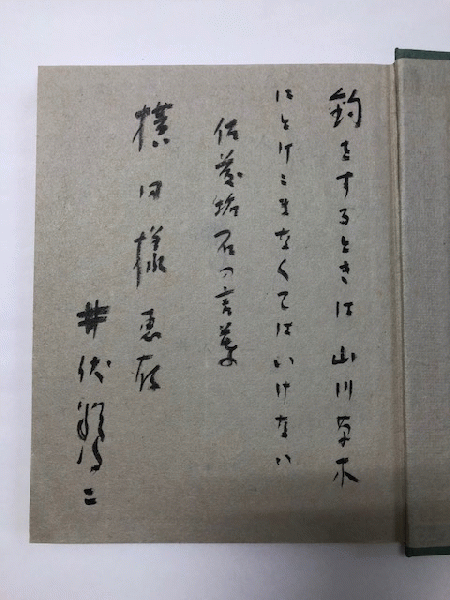 釣をするときは山川草木
にとけこまなくてはいけない
佐藤垢石の言葉
横田様恵存
井伏鱒二